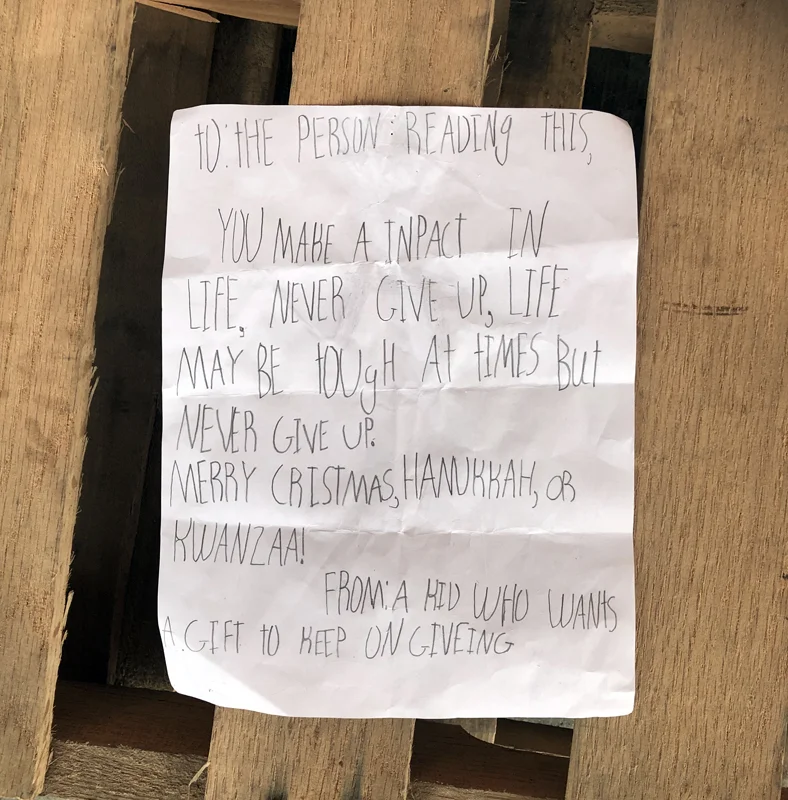 tO: tHE PERSON: READINg tHIS,
YOU MAKE A INPACt IN
LIFE, NEVER GIVE UP, LIFE
MAY BE tOUgH At tIMES But
NEVER GIVE UP.
MERRY CRISTMAS, HANUKKAH, OR
KWANZAA!
FROM: A KID WHO WANtS
A GIFt tO KEEP ON GIVEING